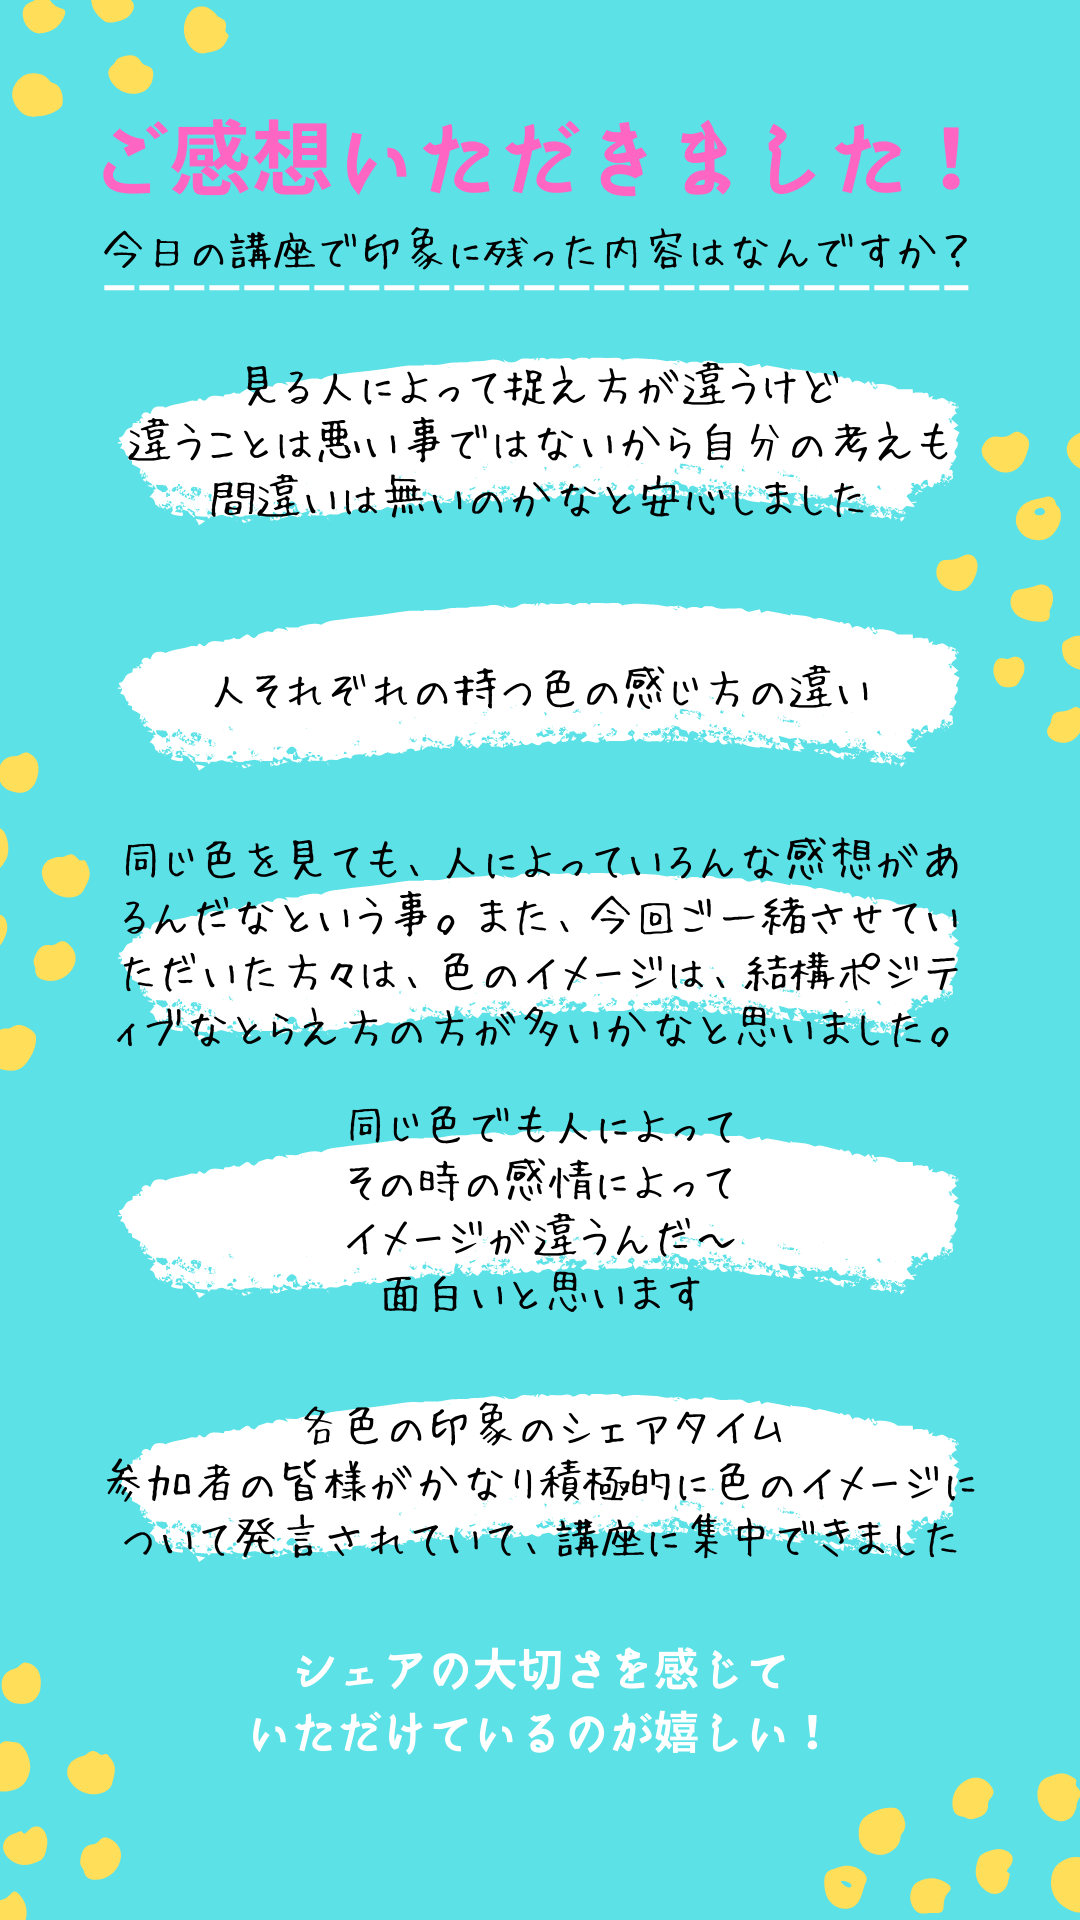 ご感想いただきました！
今日の講座で印象に残った内容はなんですか？
見る人によって捉え方が違うけど
違うことは悪い事ではないから自分の考えも
間違いは無いのかなと安心しました
人それぞれの持つ色の感じ方の違い
同じ色を見ても、人によっていろんな感想があ
るんだなという事。また、今回ご一緒させてい
ただいた方々は、色のイメージは、結構ポジテ
ィブなとらえ方の方が多いかなと思いました。
同じ色でも人によって
その時の感情によって
イメージが違うんだ〜
面白いと思います
各色の印象のシェアタイム
参加者の皆様がかなり積極的に色のイメージに
ついて発言されていて、講座に集中できました
シェアの大切さを感じて
いただけているのが嬉しい！